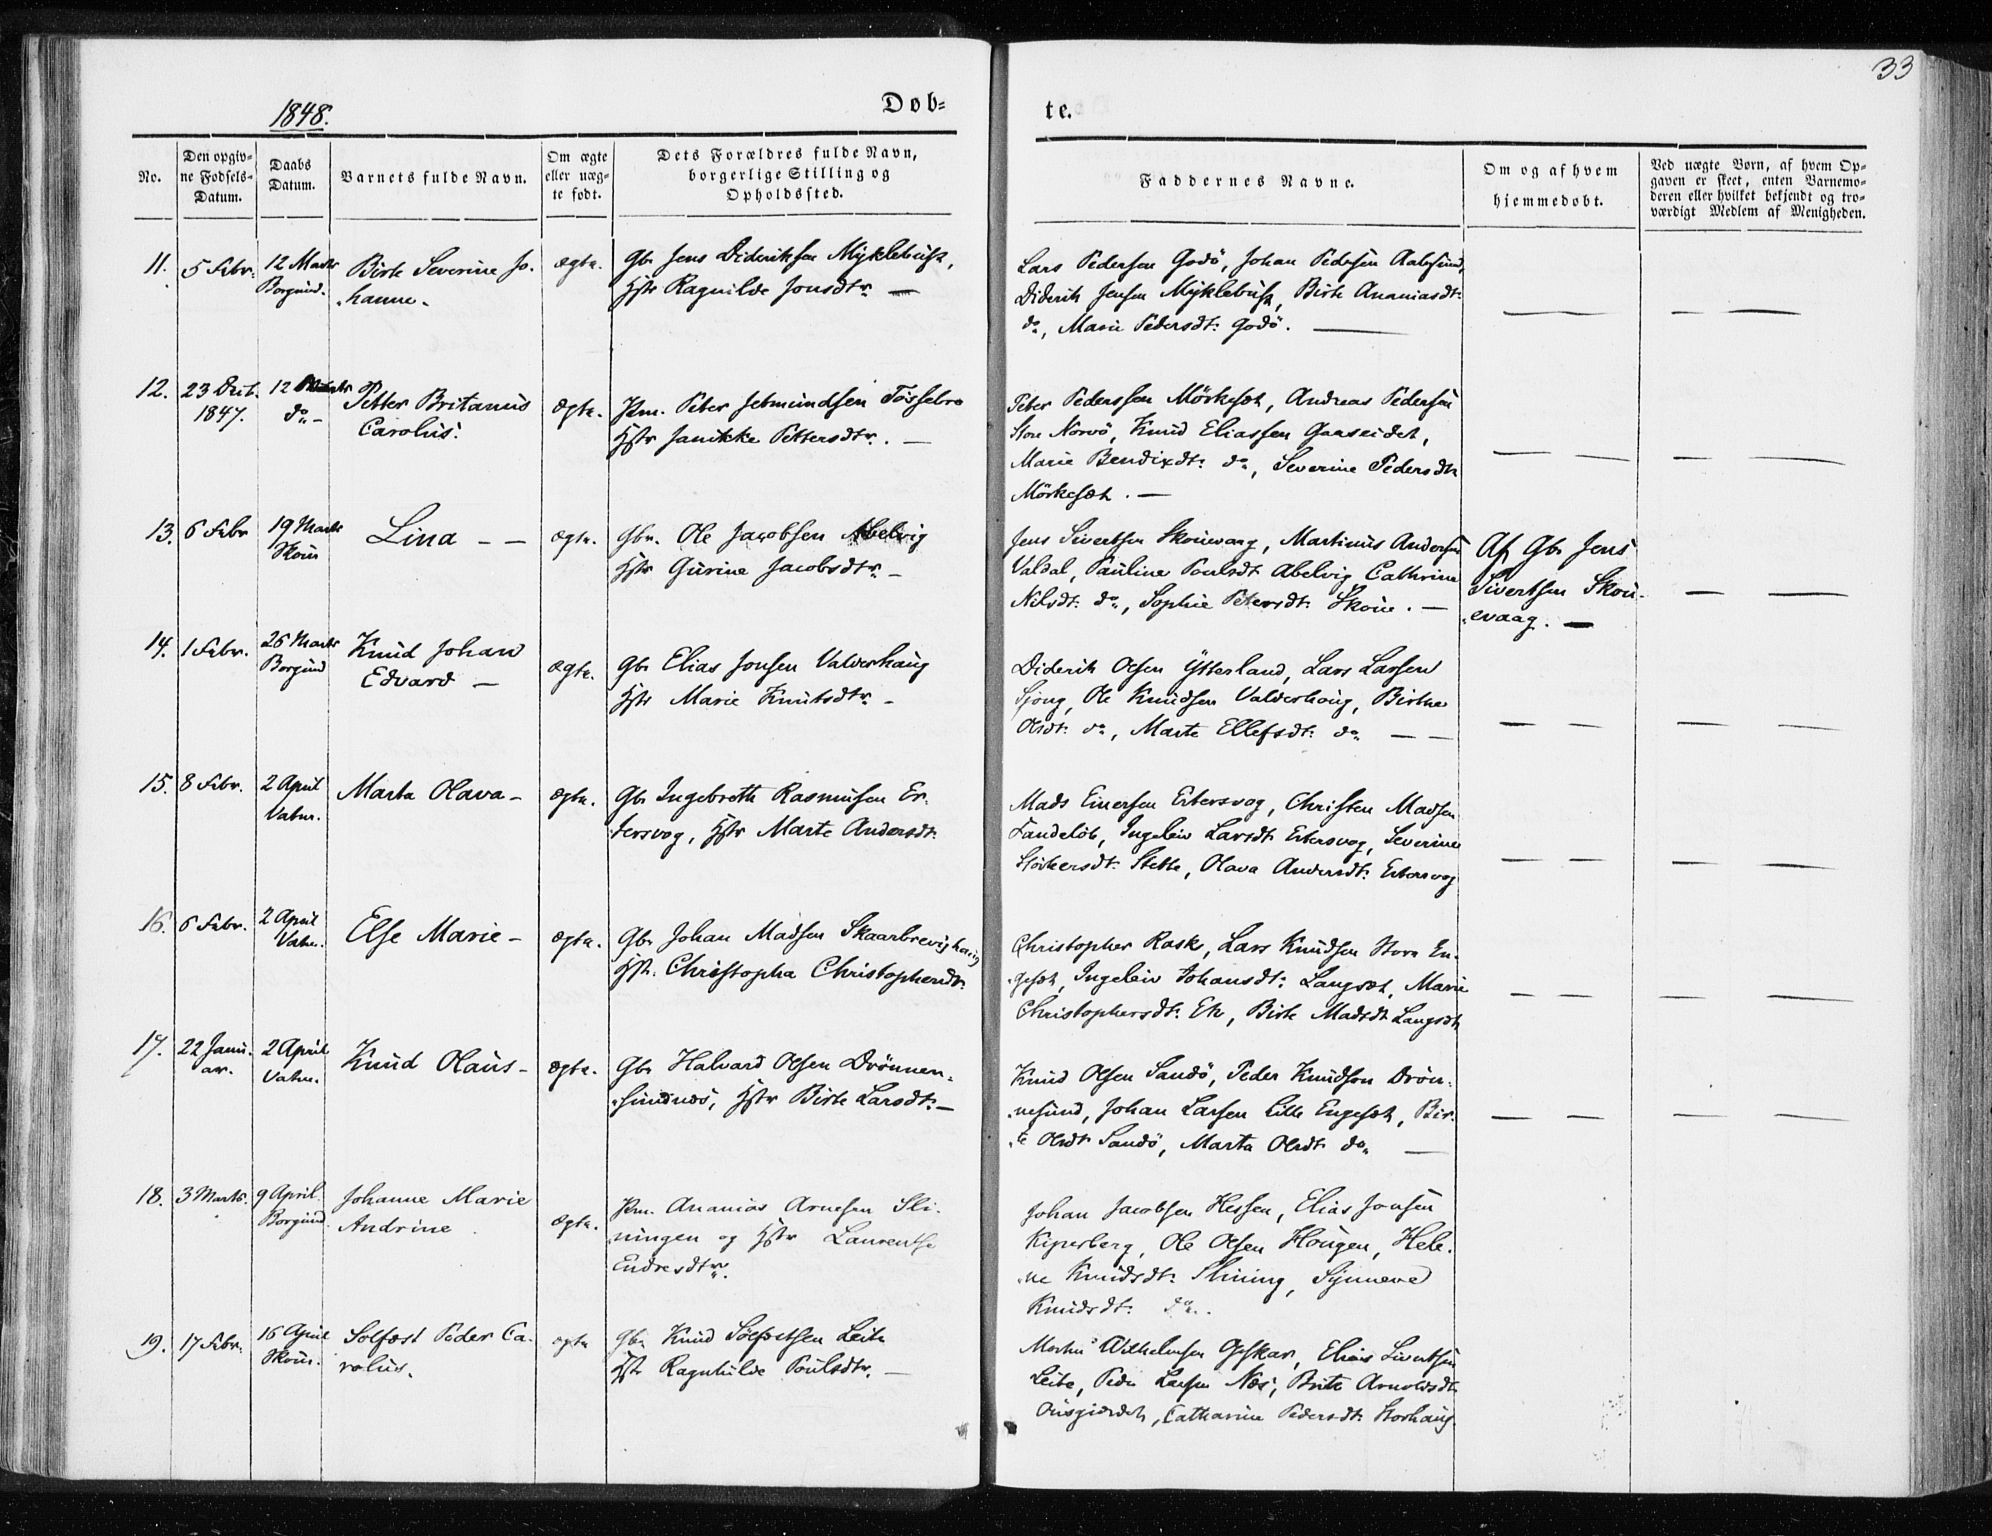 33
1848.
Døb=
te.
No.
Den opgiv=
ne Fødsels=
Datum.
Daabs
Datum.
Barnets fulde Navn.
Om ægte
eller uæg=
te født.
Dets Forældres fulde Navn,
borgerlige Stilling og
Opholdssted.
Faddernes Navne.
Om og af hvem
hjemmedøbt.
Ved uægte Børn, af hvem Op=
gaven er skeet, enten Barnemo=
deren eller hvilket bekjendt og tro=
værdigt Medlem af Menigheden.
11. 5 Febr. 12 Marts
Borgund. Birte Severine Jo-
hanne. ægte. Gbr Jens Dideriksen Myklebust,
Hstr Ragnilde Jonsdtr. —
Lars Pedersen Godö, Johan Pedersen Aalesund,
Diderik Jensen Myklebust, Birte Ananiasdt:
do, Marie Pedersdt: Godö. —
12. 23 Decb.
1847. 12 Marts
do - Petter Britanus
Carolus. ægte. Peter Jetmundsen Tösse
Hstr Janikke Pettersdtr. —
Peter Pederssen Mörkesæt, Andreas Pedersen
Store Norvö, Knud Eliassen Gaaseidet,
Marie Bendixdt: do, Severine Pedersdt
Mörkesæt. —
13. 6 Febr 19 Marts
Skoue Lina — — ægte. Gbr. Ole Jacobsen Abelvig
Hstr Gurine Jacobsdtr. —
Jens Sivertsen Skouevaag, Martinus Andersen
Valdal, Pauline Poulsdt Abelvig Cathrine
Nilsdt: do, Sophie Petersdt: Skoue. —
Af Gbr Jens
Sivertsen Skou-
evaag. —
14. 1 Febr. 26 Marts
Borgund Knud Johan
Edvard — ægte. Gbr Elias Jonsen Valderhaug
Hstr Marie Knutsdtr. —
Diderik Olsen Ytterland, Lars Larsen
Sjong, Ole Knudsen Valderhoug, Birthe
Olsdt: do, Marte Ellefsdt: do — —
15. 8 Febr. 2 April
Vatn. Marta Olava — ægte. Gbr Ingebreth Rasmusen Er-
tersvog, Hstr Marte Andersdt:
Mads Einersen Ertersvog, Christen Madsen
Tandelöb, Ingeleiv Larsdt Ertersvog, Severine
Stette, Olava Andersdt: Ertersvog
16. 6 Febr. 2 April
Vatn. Else Marie — ægte. Gbr Johan Madsen Skaarbrevighaug
Hstr. Christopha Christophersdt.
Christopher Rask, Lars Knudsen Store En-
gesæt, Ingeleiv Johansdt: Langsæt, Marie
Christophersdt: Ek, Birte Madsdt Langsæt
17. 22 Janu-
ar. 2 April
Vatn. Knud Olaus — ægte. Gbr Halvard Olsen Drönnen-
sundnes, Hstr Birte Larsdt. —
Knud Olsen Sandö, Peder Knudsen Drön-
nesund, Johan Larsen Lille Engesæt, Bir-
te Olsdt Sandö, Marta Olsdt do —
18. 3 Marts. 9 April
Borgund. Johanne Marie
Andrine. ægte. Ananias Arnesen Sli-
ningen og Hstr Laurentse
Endresdtr.
Johan Jacobsen Hessen, Elias Jonsen
Kiperberg, Ole Olsen Hougen, Hele-
ne Knudsdt: Slining, Synneve
Knudsdt: do.
19. 17 Febr. 16 April
Skoue. Solfæst Peder Ca-
rolus. ægte Gbr Knud Sölfestsen Leite
Hstr Ragnhilde Poulsdtr. —
Martin Wilhelmsen Giskar, Elias Sivertsen
Leite, Peder Larsen Næs, Brite Arnoldsdt
Catharine Pedersdt: Storhaug